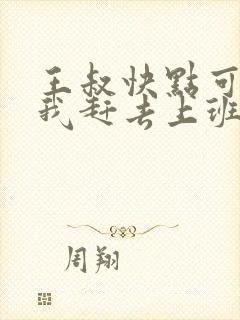 王叔快點可
我赶去上班
周翔